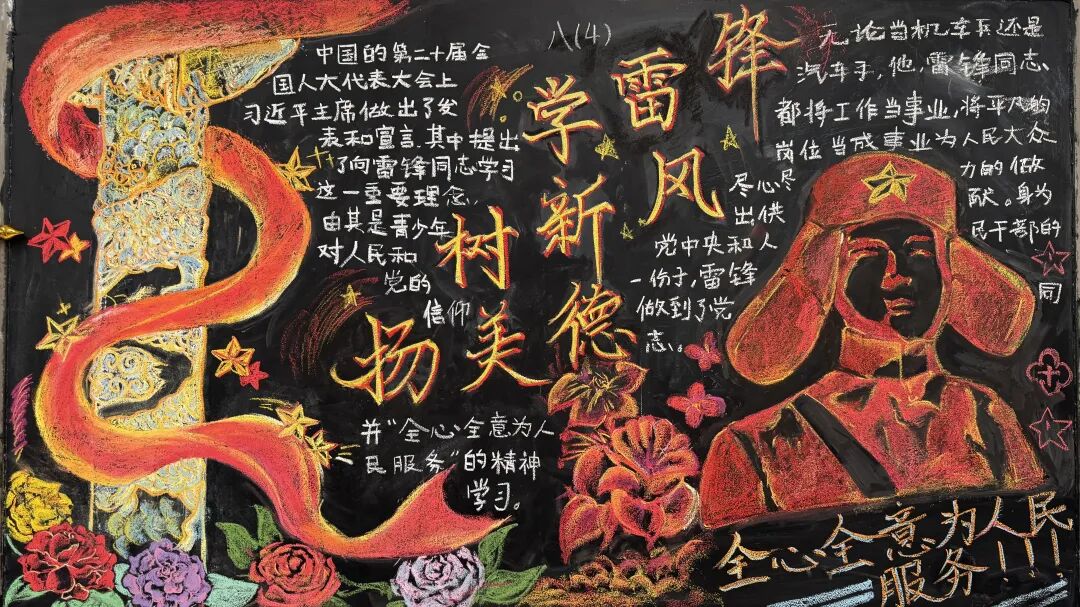 八(4)
学雷锋
树新风
扬美德
中国的第二十届全
国人大代表大会上
习近平主席做出了发
表和宣言,其中提出
了向雷锋同志学习
这一重要理念,
由其是青少年
对人民和
党的
信仰
并“全心全意为人
民服务”的精神
学习。
无论当机车兵还是
汽车手,他,雷锋同志
都将工作当事业,将平凡的
岗位当成事业为人民大众
尽心尽力的做
出供献。身为
党中央和人民干部的
一份子,雷锋同
做到了党
志。
全心全意为人民
服务!!!